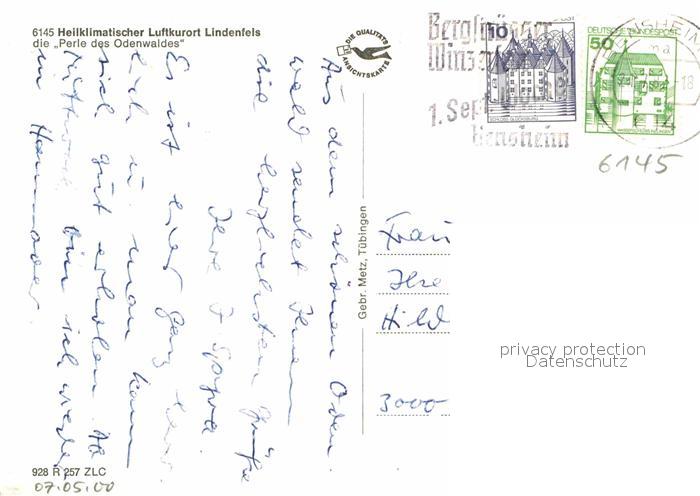 6145 Heilklimatischer Luftkurort Lindenfels
die „Perle des Odenwaldes"
DIE QUALITÄTS
ANSICHTSKARTE
Bergsträßer
Winzer
1. Sept
Bensheim
10
SCHLOSS GLÜCKSBURG
DEUTSCHE BUNDESPOST
50
WASSERSCHLOSS INZLINGEN
18
6145
Aus dem schönen Oden-
wald sendet Ihnen
die herzlichsten Grüße
Ihre
Es ist hier ganz
und man kann
sich gut erholen. Ab
Mittwoch bin ich wieder
in Hannover.
Gebr. Metz, Tübingen
Frau
Ilse
Hild
3000
privacy protection
Datenschutz
928 R 257 ZLC
07.05.00